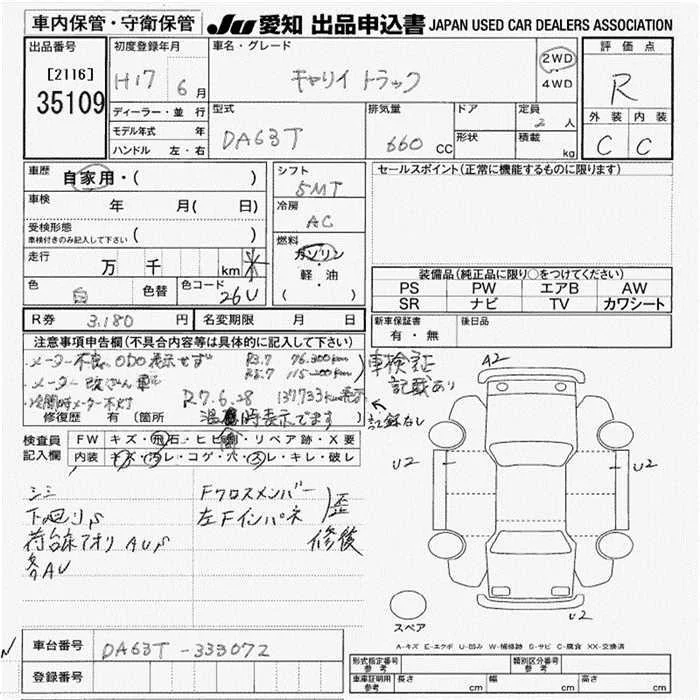 車内保管・守衛保管
JU 愛知 出品申込書 JAPAN USED CAR DEALERS ASSOCIATION
出品番号
[2116]
35109
初度登録年月
H17 6 月
車名・グレード
キャリイ トラック
2WD
4WD
評価点
R
外装 内装
C C
ディーラー・並行
モデル年式 年
ハンドル 左・右
型式
DA63T
排気量
660 CC
ドア
形状
定員
2 人
積載
kg
車歴
自家用・( )
車検
年 月( 日)
受検形態
車検付きのみ記入して下さい ( )
走行
万 千 km
色
色替
色コード
26U
シフト
5MT
冷房
AC
燃料
ガソリン
・
軽・油
( )
セールスポイント(正常に機能するものに限ります)
装備品(純正品に限り○をつけてください)
PS PW エアB AW
SR ナビ TV カワシート
R券 3.180 円
名変期限 月 日
新車保証書
有・無
後日品
注意事項申告欄(不具合内容等は具体的に記入して下さい)
・メーター不良、ODO表示せず R3.7 76.300km
・メーター改ざん車 R5.7 115.200km
・冷間時メーター不灯 R7.6.28 137733km表示
温度時表示でます
修復歴 有(箇所
車検証
記載あり
記録なし
検査員
記入欄
FW キズ・飛石・ヒビ・リペア跡・X要
内装 キズ・汚レ・コゲ・穴・スレ・キレ・破レ
シミ
下廻りS
荷台床アオリ AUS
各AU
Fクロスメンバー
左Fインパネ
歪
修復
A2
U2
U2
U2
スペア
A-キズ E-エクボ U-凹み W-補修跡 S-サビ C-腐食 XX-交換済
車台番号 DA63T-333072
登録番号
形式指定番号
参考
類別区分番号
参考
車庫証明用
参考
長さ cm
幅 cm
高さ cm